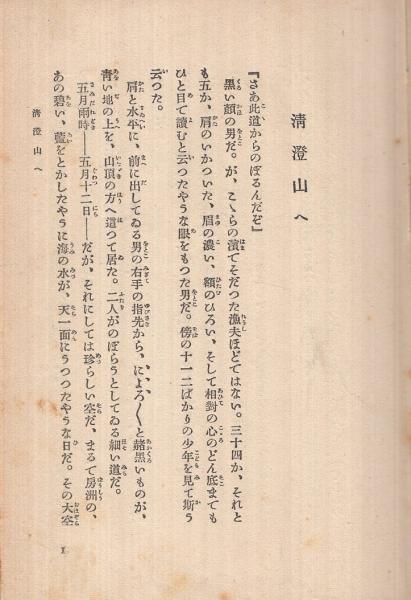 清澄山へ
『さあ此道からのぼるんだぞ』
黒い顔の男だ。が、こゝらの濱でそだつた漁夫ほどではない。三十四か、それと
も五か、肩のいかついた、眉の濃い、額のひろい、そして相對の心のどん底までも
ひと目で讀むと云つたやうな眼をもつた男だ。傍の十一二ばかりの少年を見て斯う
云つた。
肩と水平に、前に出してゐる男の右手の指先から、によろ〳〵と赭黒いものが、
青い地の上を、山頂の方へ這つて居た。二人がのぼらうとしてゐる細い道だ。
五月雨時――五月十二日――だが、それにしては珍らしい空だ、まるで房洲の、
あの碧い、藍をとかしたやうに海の水が、天一面にうつつたやうな日だ。その大空
清澄山へ
1